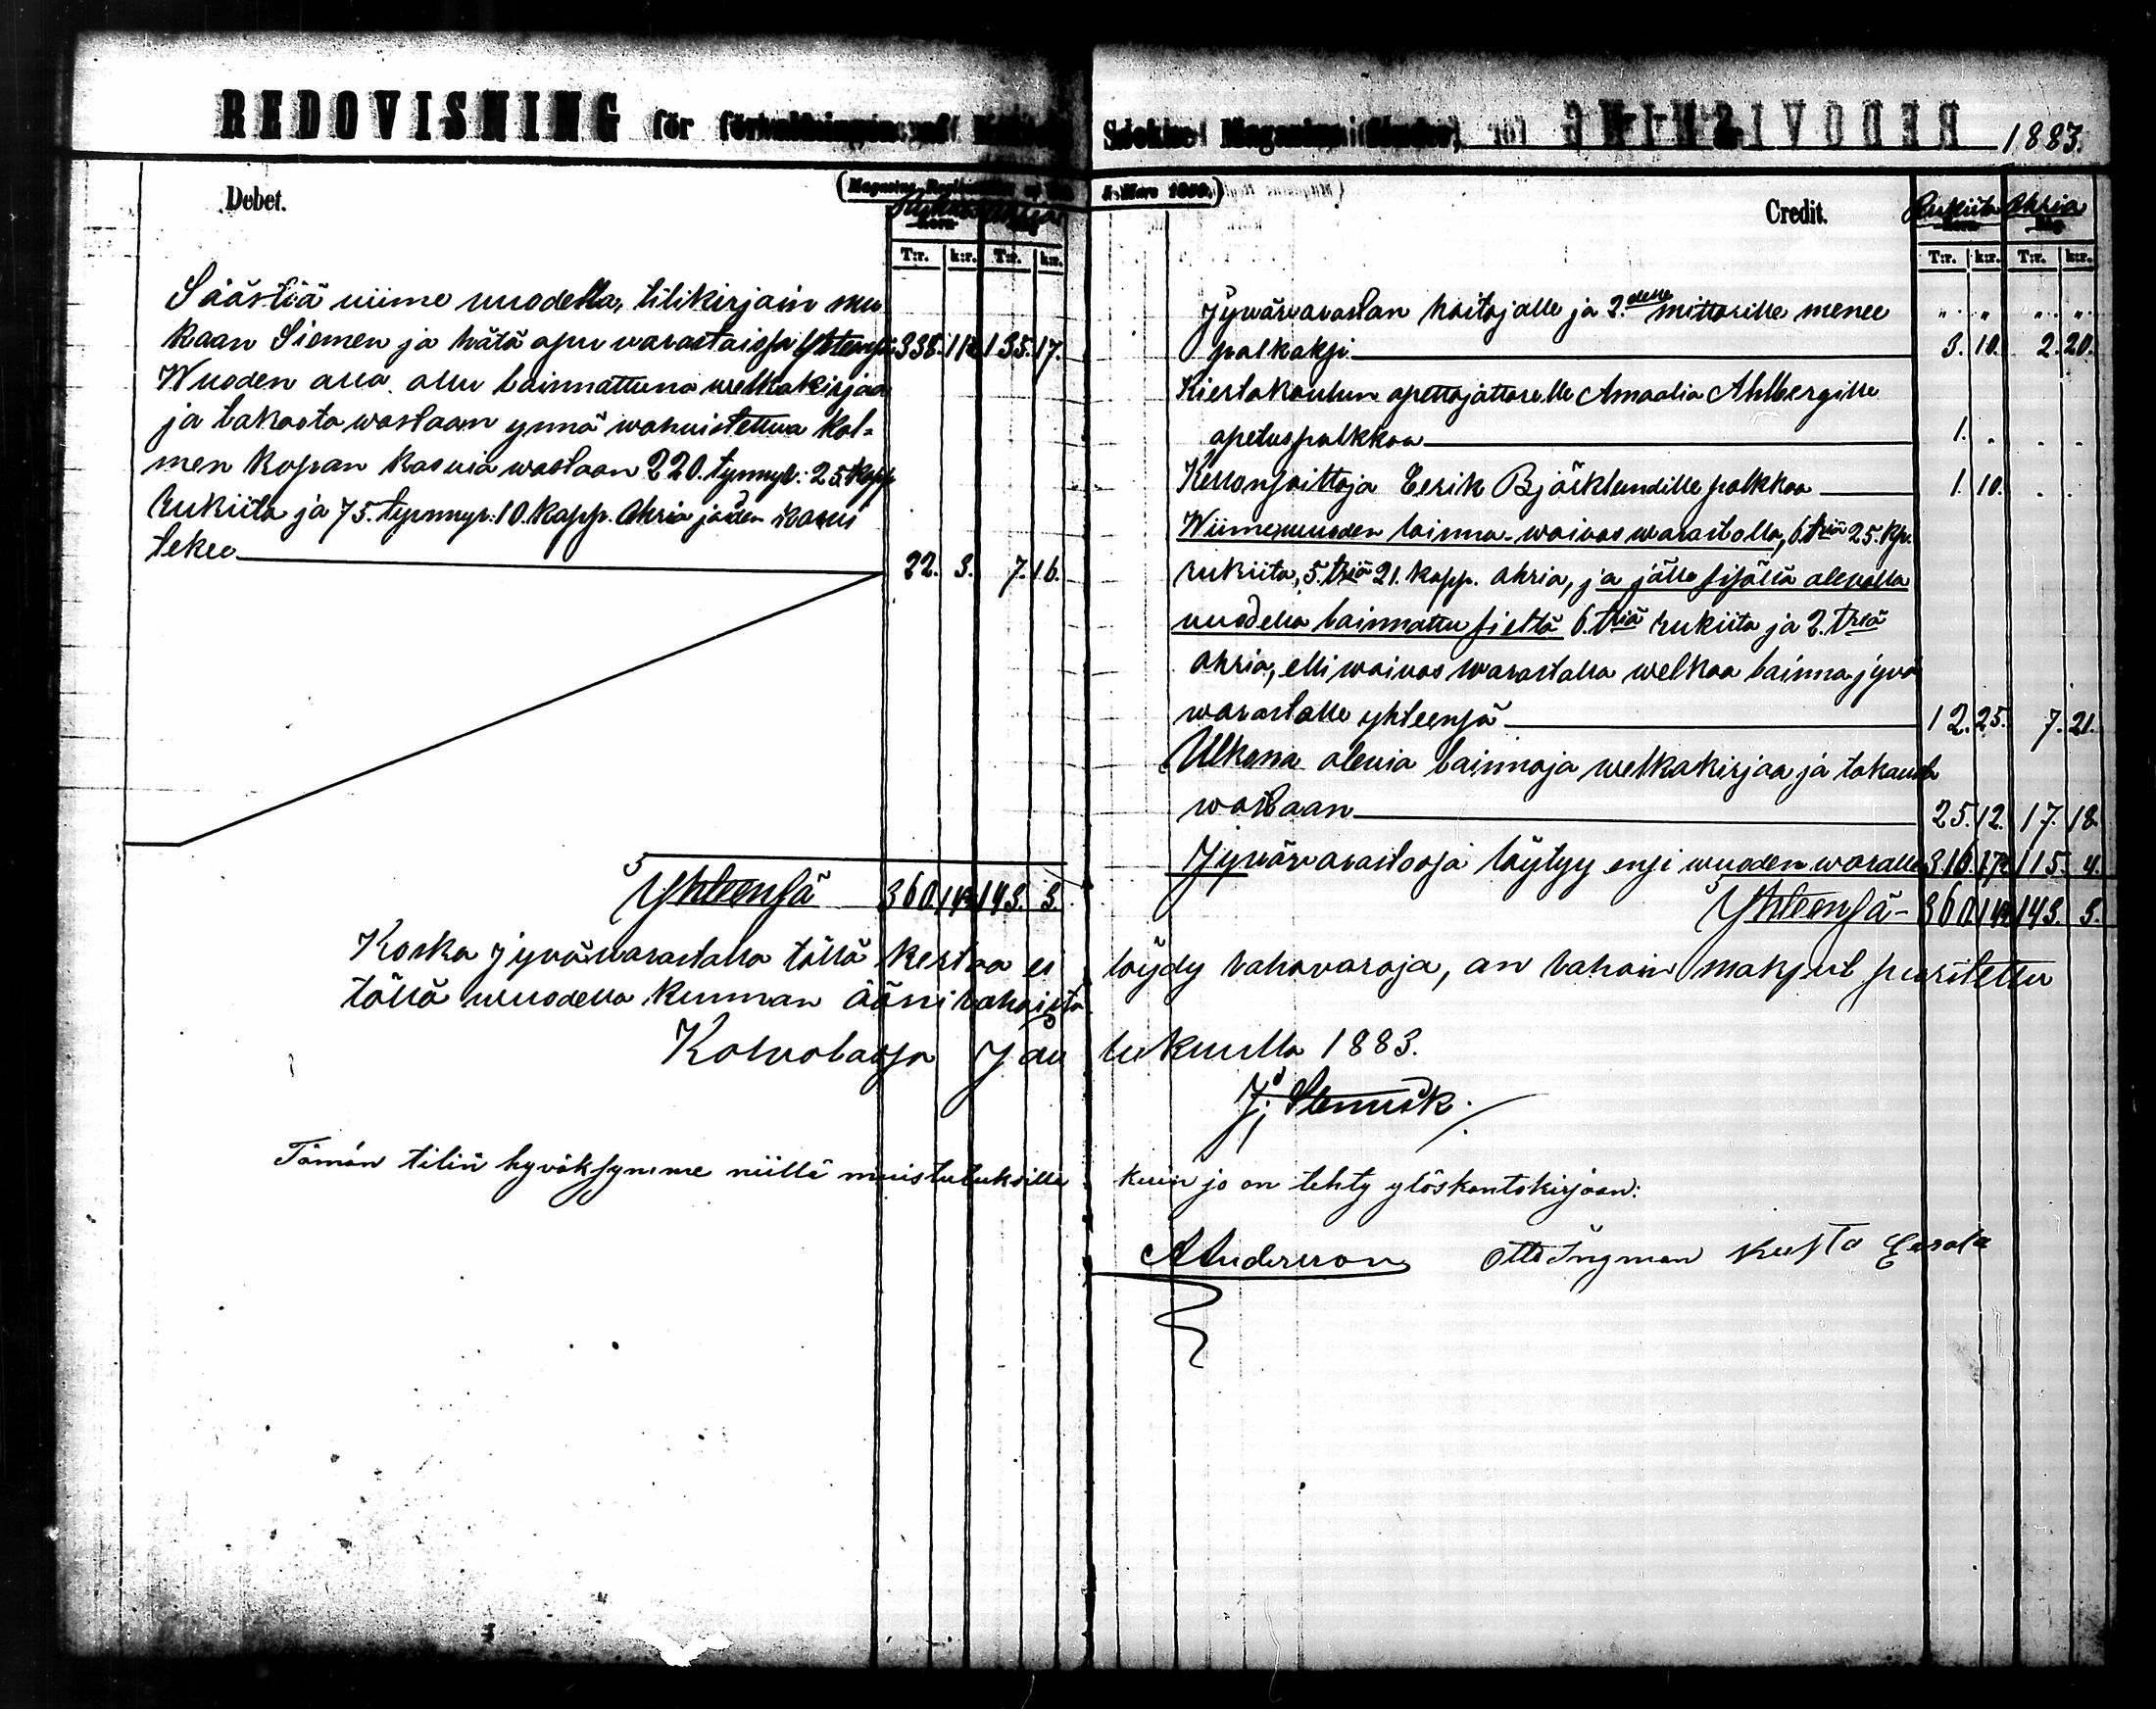 REDOVISNING för
Debet.
T:r. k:r. T:r. k:r.
Säästöä viime vuodella, tilikirjain mu
kaan Siemen ja hätä apu varastoissa Yhteensä 338. 11½ 135. 17.
Wuoden alla ollu lainnattuna welkakirjaa
ja takaota wastaan ynnä wahvistettua kol=
men kopan kasvia wastaan 220. tynnyr: 25. kapp
Rukiita ja 75. tynnyr: 10. kapp. Ohria joiden kasvu
tekee 22. 3. 7. 16.
Yhteensä 360. 14½ 143. 3.
1883.
Credit. Rukiita Ohria
T:r. k:r. T:r. k:r.
Jyvävaraston hoitajalle ja 2.delle mittarille menee
palkaksi 3. 10. 2. 20.
Kiertokoulun opettajattarelle Amaalia Ahlbergille
opetuspalkkaa 1. . . .
Kellonsoittaja Eerik Björklundille palkkaa 1. 10. . .
Wiimevuoden lainna waivas warastolla, 6. triä 25. kp.
rukiita, 5. triä 21. kapp. ohria, ja jälle sisällä olevalla
vuodella lainnattu sieltä 6. triä rukiita ja 2. triä
ohria, elli waivas warastolla welkaa lainna jyvä
warastolle yhteensä 12. 25. 7. 21.
Ulkona olevia lainnoja welkakirjaa ja takausta
wastaan 25. 12. 17. 18.
Jyvävarastossa löytyy ensi wuoden waralle 316. 17½ 115. 4.
Yhteensä 360. 14½ 143. 3.
Koska jyvävarastolla tällä kertaa ei löydy rahavaroja, on rahain maksut suoritettu
tällä wuodella kunnan ääni rahoista
Kolvolassa Jou lukuulla 1883.
Tämän tilin hyväksymme niillä muistutuksilla kuin jo on tehty ylöskantokirjaan:
A Andersson Otto Ingman Kusta Eerola